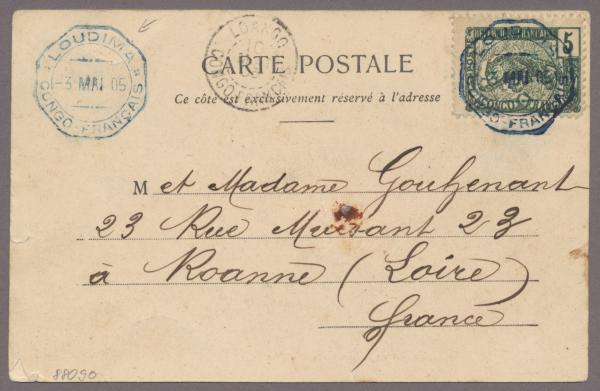 LOUDIMA
3 MAI 05
CONGO-FRANÇAIS
LOANGO
10
CONGO FRANÇAIS
5
MAI 05
CONGO-FRANÇAIS
CARTE POSTALE
Ce côté est exclusivement réservé à l'adresse
M et Madame Gouttenant
23 Rue Mulsant 23
à Roanne (Loire)
france
88090